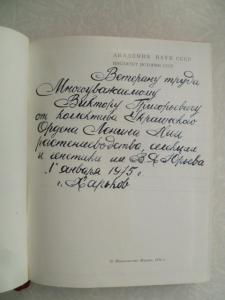 АКАДЕМИЯ НАУК СССР
ИНСТИТУТ ИСТОРИИ СССР
Ветерану труда
Многоуважаемому
Виктору Григорьевичу
от коллектива Украинского
Ордена Ленина НИИ
растениеводства, селекции
и генетики им В Я Юрьева
1 января 1975 г.
г. Харьков